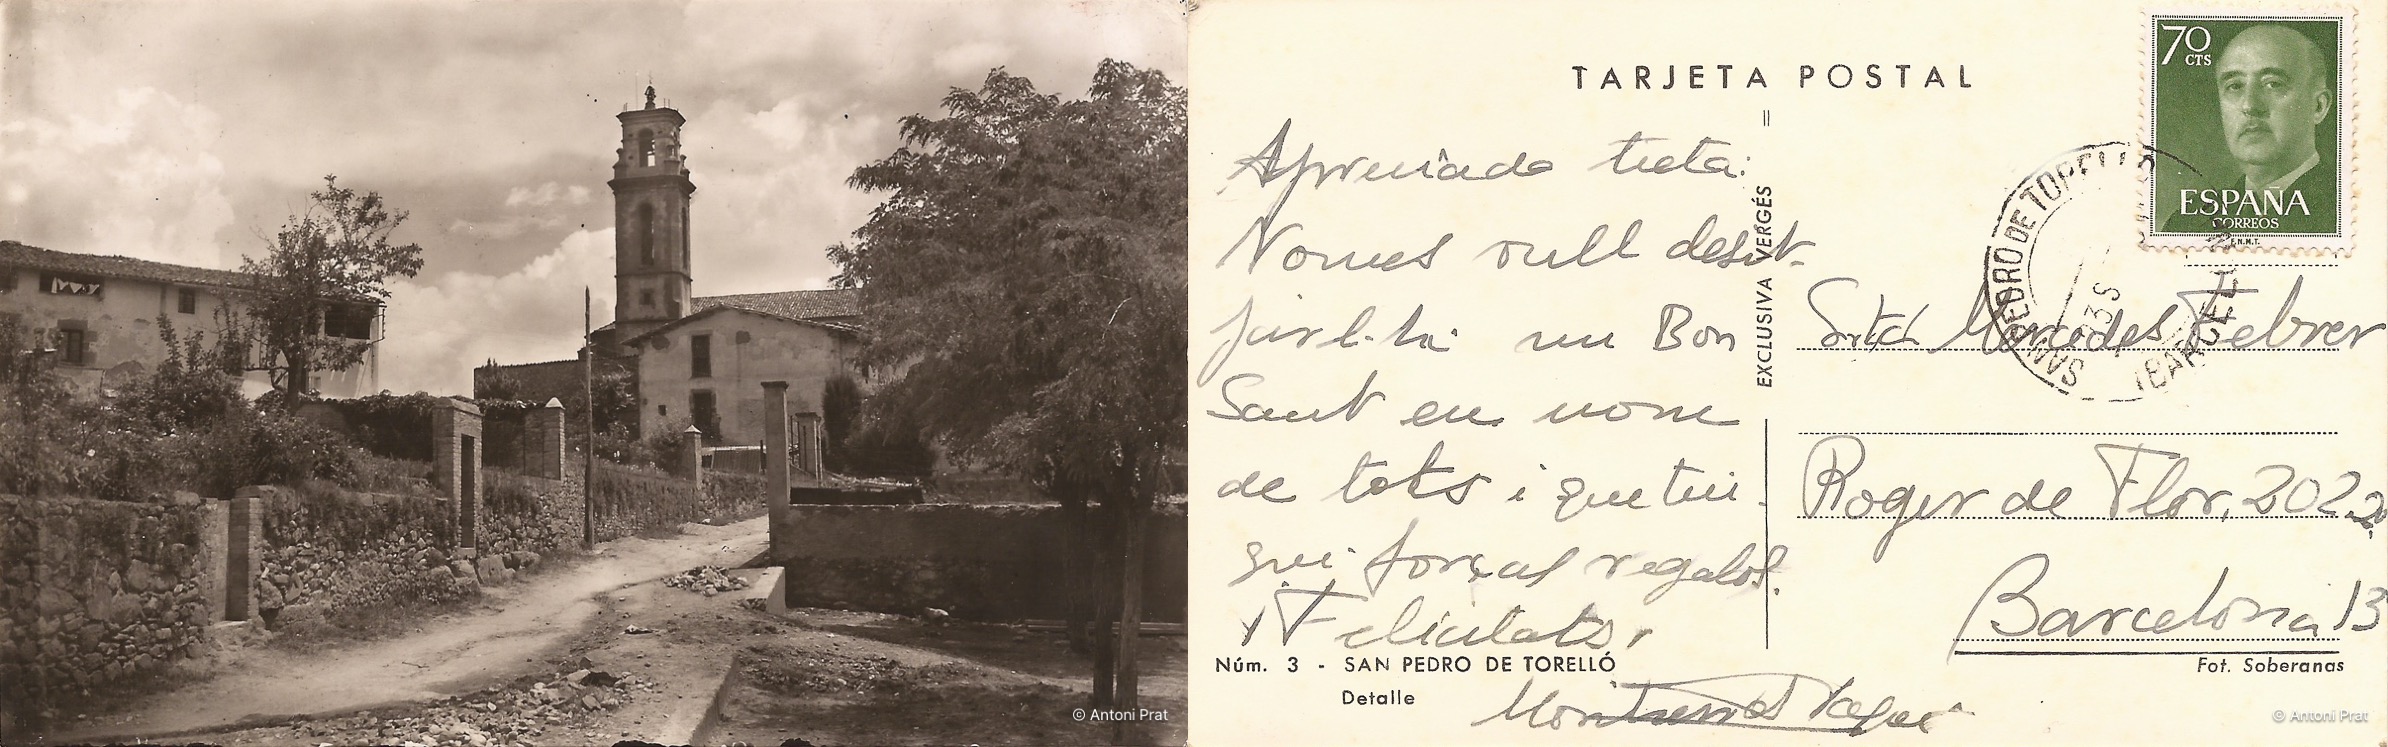 © Antoni Prat
TARJETA POSTAL
Apreciada tieta:
Nomes vull desit-
jar-li un Bon
Sant en nom
de tots i que tin-
gui forças regalos.
¡Felicitats!
Montserrat
Núm. 3 - SAN PEDRO DE TORELLÓ
Detalle
EXCLUSIVA VERGÉS
70
CTS
ESPAÑA
CORREOS
F.N.M.T.
SAN PEDRO DE TORELLO
(BARCELONA)
Srta Mercedes Febrer
Roger de Flor, 202 2º
Barcelona 13
Fot. Soberanas
© Antoni Prat